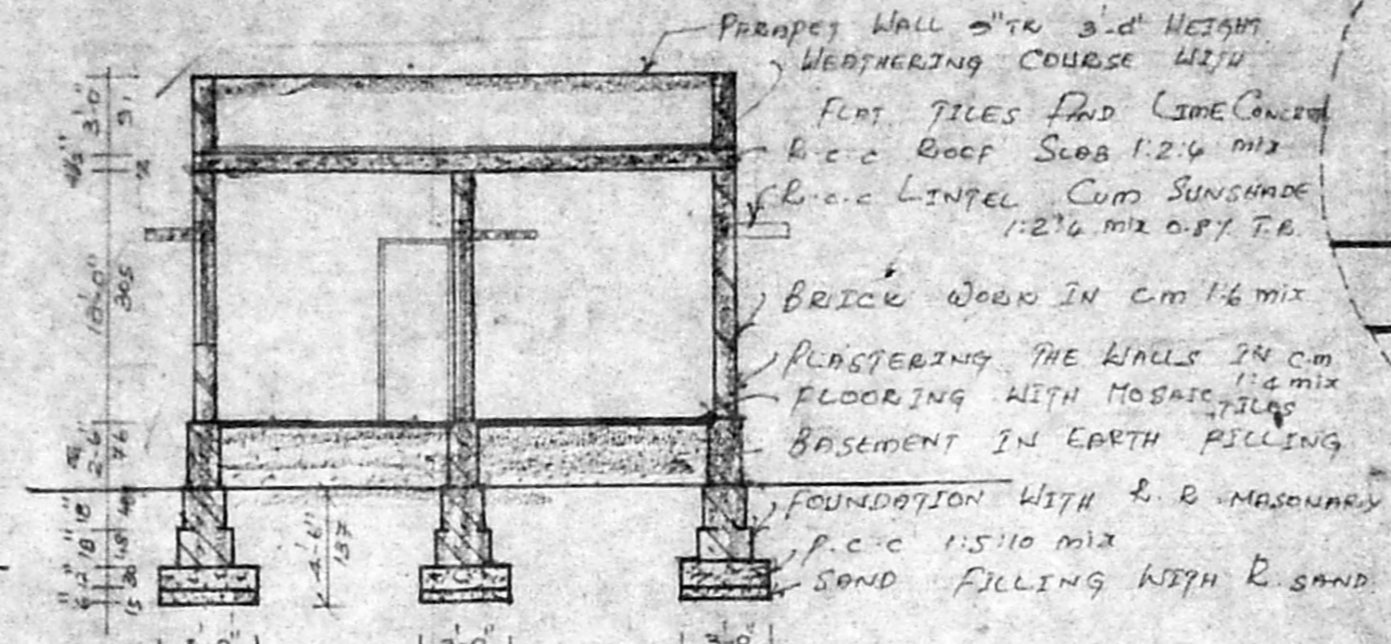 PARAPET WALL 9" TK 3'-0" HEIGHT
WEATHERING COURSE WITH
FLAT TILES AND LIME CONCRETE
R.C.C ROOF SLAB 1:2:4 mix
R.C.C LINTEL CUM SUNSHADE
1:2:4 mix 0.8% T.R.
BRICK WORK IN CM 1:6 mix
PLASTERING THE WALLS IN C.M
1:4 mix
FLOORING WITH MOSAIC TILES
BASEMENT IN EARTH FILLING
FOUNDATION WITH R.R. MASONARY
P.C.C 1:5:10 mix
SAND FILLING WITH R. SAND.
3'-0"
91
4½"
10'-0"
305
2'-6"
76
18"
18"
12"
30
6"
15
4'-6"
137
3'-0"